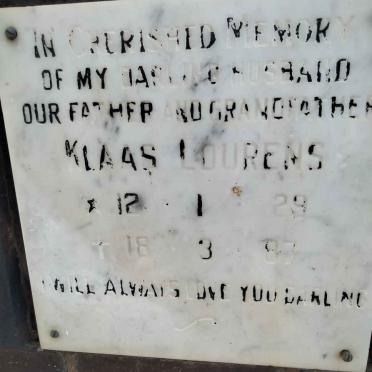 IN CHERISHED MEMORY
OF MY DARLING HUSBAND
OUR FATHER AND GRANDFATHER
KLAAS LOURENS
* 12 1 29
† 18 3 97
I WILL ALWAYS LOVE YOU DARLING